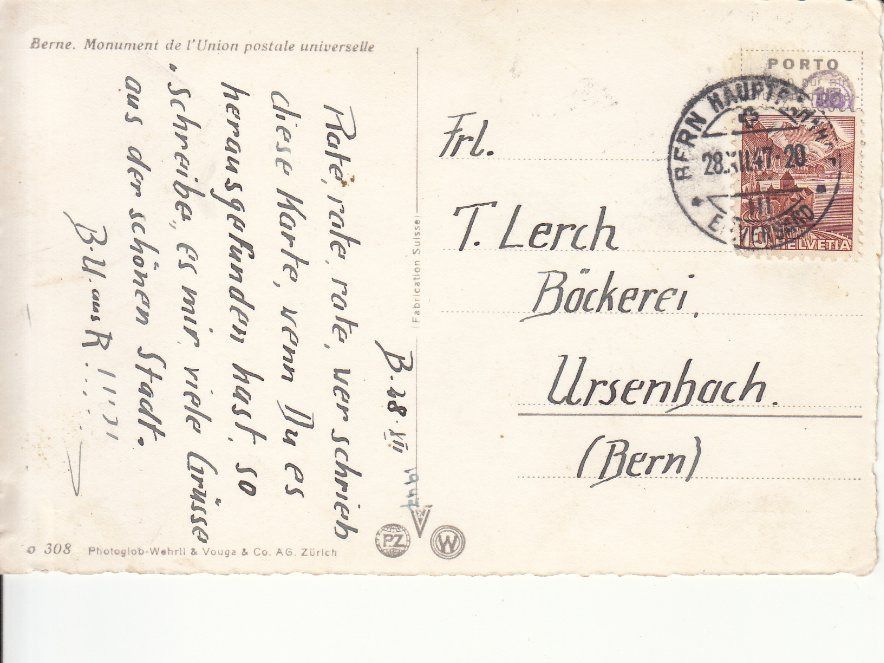 Berne. Monument de l'Union postale universelle
PORTO
BERN HAUPTBAHNHOF
28.XII.47-20
HELVETIA
Frl.
T. Lerch
Böckerei,
Ursenbach.
(Bern)
Fabrication Suisse
B. 28. XII
1947
Rate, rate, rate, wer schrieb
diese Karte, wenn Du es
herausgefunden hast, so
schreibe, es mir, viele Grüsse
aus der schönen Stadt.
B. U. aus R !!!!!
PZ
W
o 308 Photoglob-Wehrli & Vouga & Co. AG. Zürich